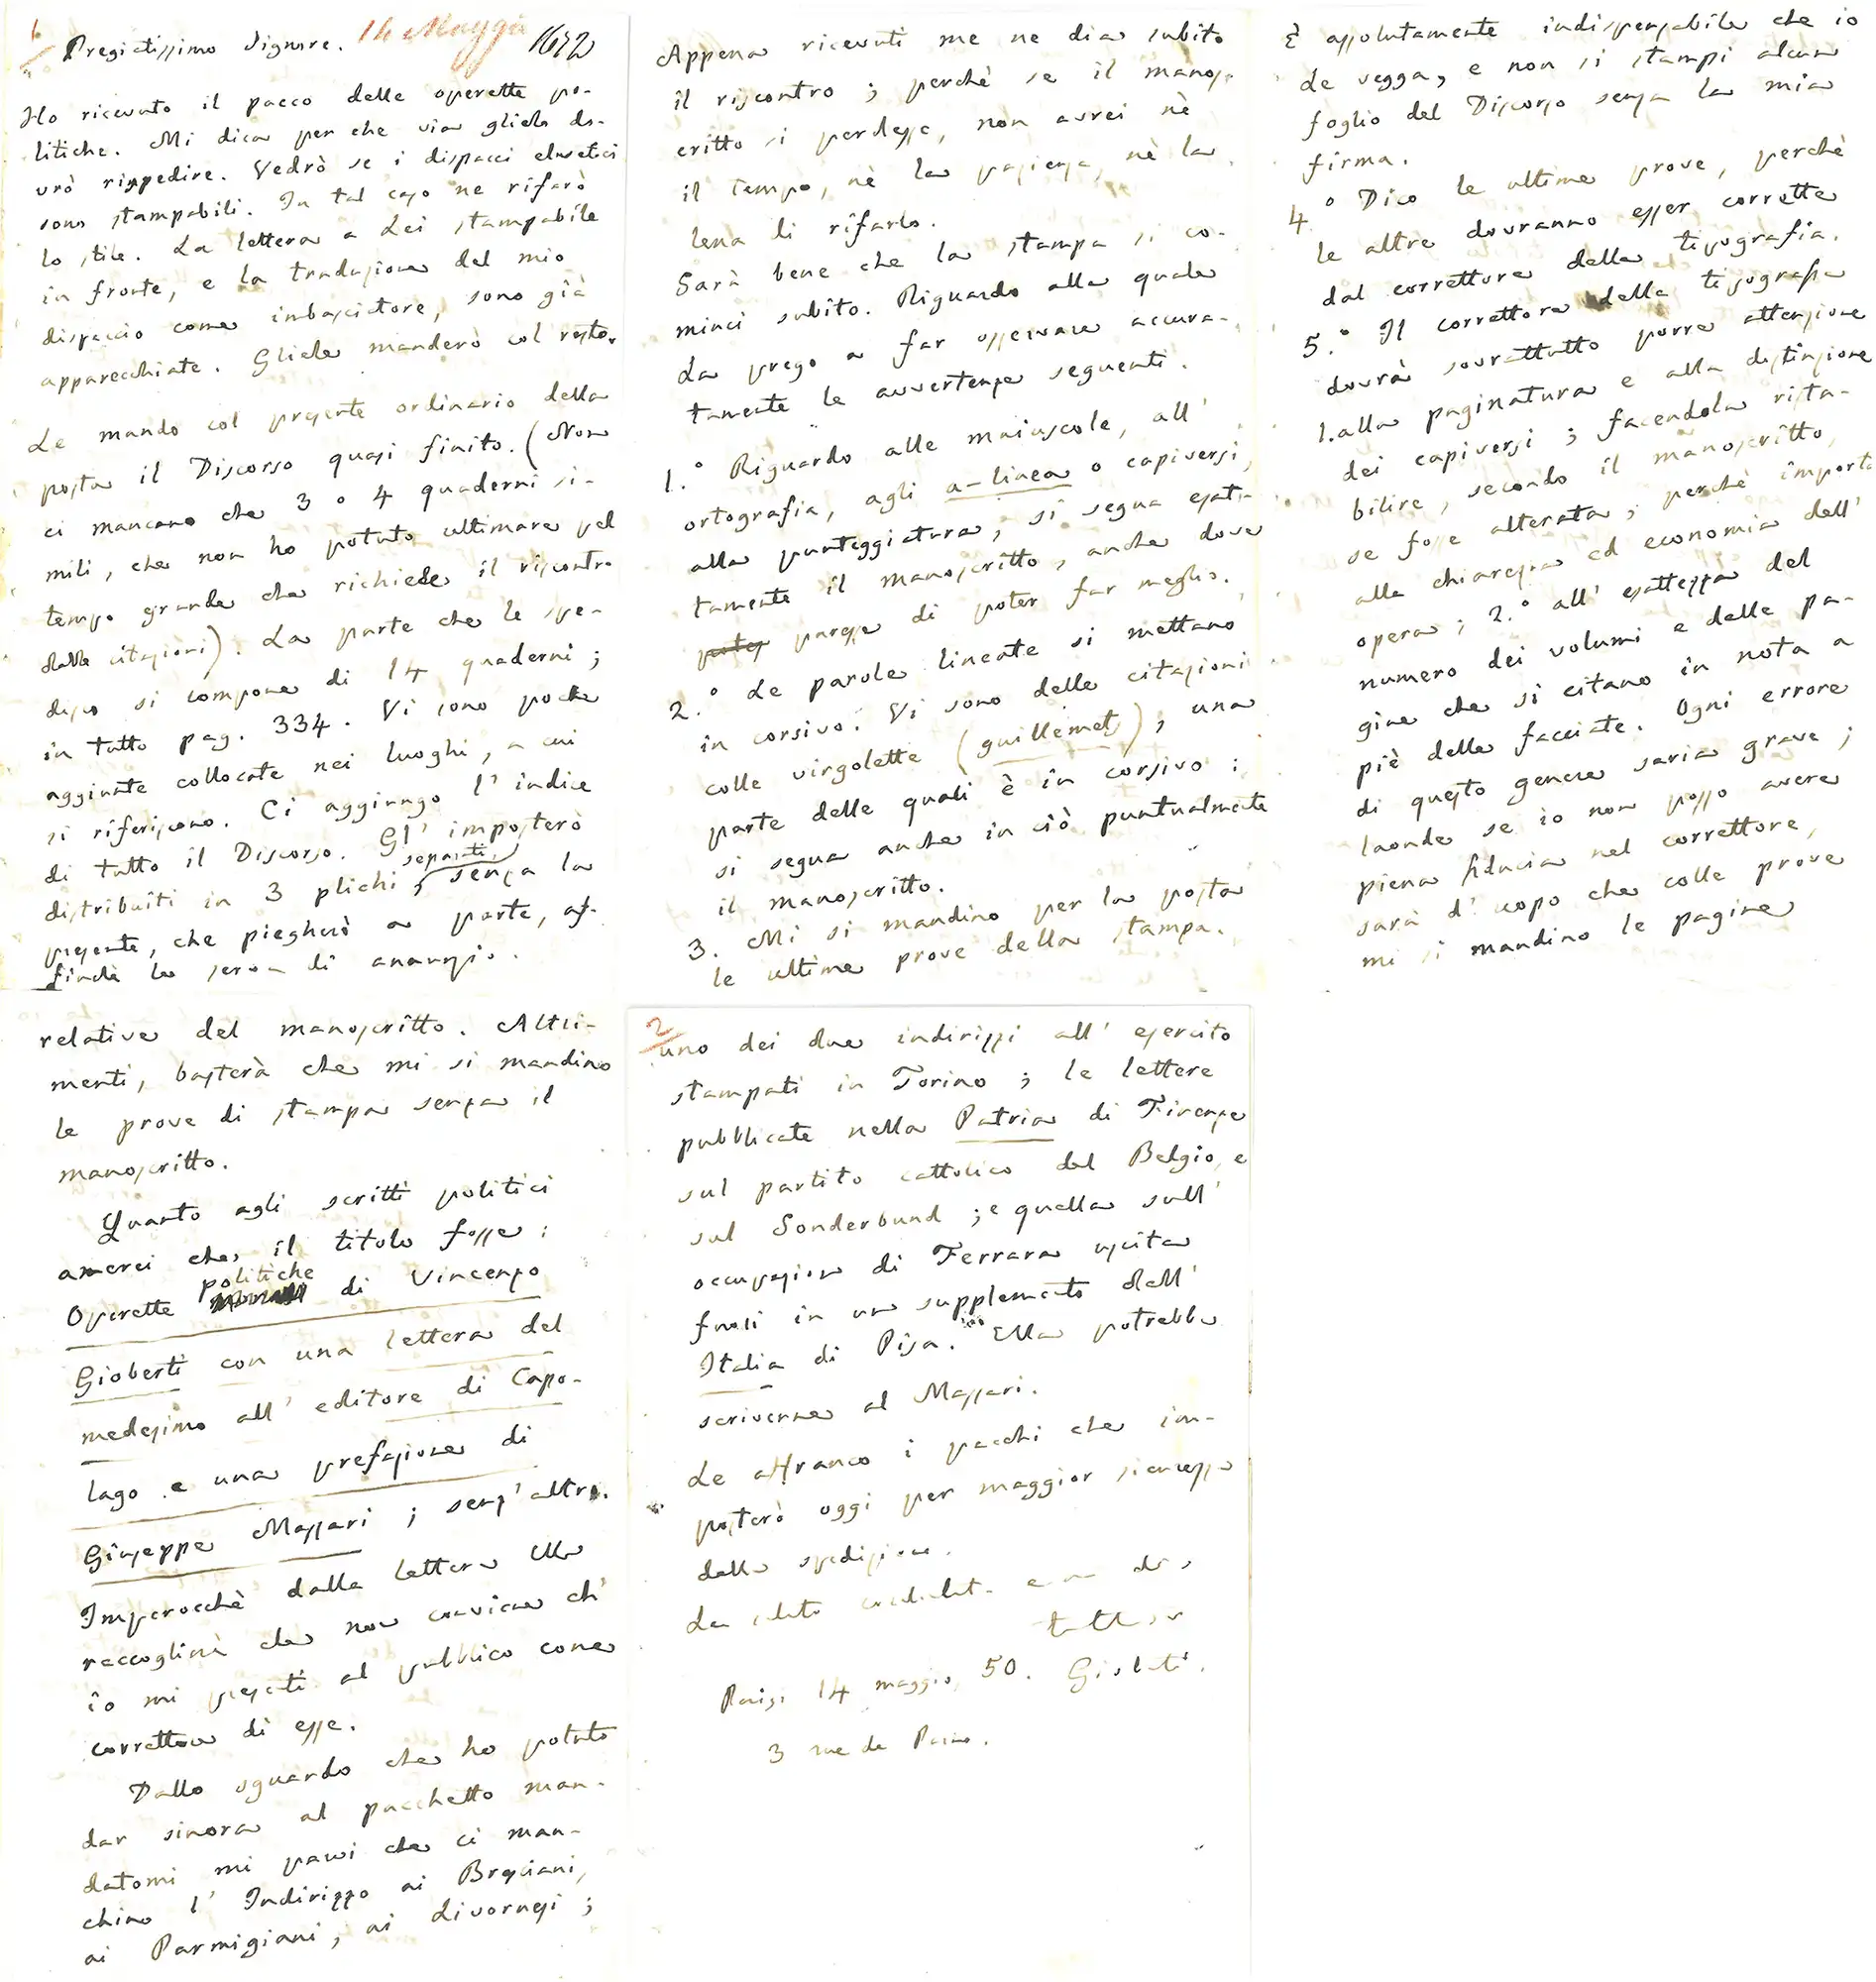 Pregiatissimo Signore. 14 Maggio
Ho ricevuto il pacco delle operette po-
litiche. Mi dica per che via gliele do-
vrò rispedire. Vedrò se i dispacci elvetici
sono stampabili. In tal caso ne rifarò
lo stile. La lettera a Lei stampabile
in fronte, e la traduzione del mio
dispaccio come imbasciatore, sono già
apparecchiate. Gliele manderò col resto.
Le mando col presente ordinario della
posta il Discorso quasi finito. (Non
ci mancano che 3 o 4 quaderni si-
mili, che non ho potuto ultimare pel
tempo grande che richiede il riscontro
delle citazioni). La parte che le spe-
disco si compone di 14 quaderni;
in tutto pag. 334. Vi sono poche
aggiunte collocate nei luoghi, a cui
si riferiscono. Ci aggiungo l'indice
di tutto il Discorso. Gl'imposterò
distribuiti in 3 plichi separati, senza la
presente, che piegherò a parte, af-
finchè le serva di anunzio.
Appena ricevuti me ne dia subito
il riscontro; perchè se il manos-
critto si perdesse, non avrei nè
il tempo, nè la pazienza, nè la
lena di rifarlo.
Sarà bene che la stampa si co-
minci subito. Riguardo alla quale
La prego a far osservare accura-
tamente le avvertenze seguenti.
1.° Riguardo alle maiuscole, all'
ortografia, agli a-linea o capiversi,
alla punteggiatura, si segua esat-
tamente il manoscritto, anche dove
paresse di poter far meglio.
2.° Le parole lineate si mettano
in corsivo. Vi sono delle citazioni
colle virgolette (guillemets), una
parte delle quali è in corsivo:
si segua anche in ciò puntualmente
il manoscritto.
3. Mi si mandino per la posta
le ultime prove della stampa.
È assolutamente indispensabile che io
le vegga, e non si stampi alcun
foglio del Discorso senza la mia
firma.
4.° Dico le ultime prove, perchè
le altre dovranno esser corrette
dal correttore della tipografia.
5.° Il correttore della tipografia
dovrà sovrattutto porre attenzione
1. alla paginatura e alla distinzione
dei capiversi; facendola rista-
bilire, secondo il manoscritto,
se fosse alterata; perchè importa
alla chiarezza ed economia dell'
opera; 2.° all'esattezza del
numero dei volumi e delle pa-
gine che si citano in nota a
piè delle facciate. Ogni errore
di questo genere saria grave;
laonde se io non posso avere
piena fiducia nel correttore,
sarà d'uopo che colle prove
mi si mandino le pagine
relative del manoscritto. Altri-
menti, basterà che mi si mandino
le prove di stampa senza il
manoscritto.
Quanto agli scritti politici
amerei che il titolo fosse:
Operette politiche di Vincenzo
Gioberti con una lettera del
medesimo all'editore di Capo-
lago e una prefazione di
Giuseppe Massari; senz'altro.
Imperocchè dalla lettera Ella
raccoglierà che non conviene ch'
io mi presenti al pubblico come
correttore di esse.
Dallo sguardo che ho potuto
dar sinora al pacchetto man-
datomi mi parvi che ci man-
chino l'Indirizzo ai Bresciani,
ai Parmigiani, ai Livornesi;
2
uno dei due indirizzi all'esercito
stampati in Torino; le lettere
pubblicate nella Patria di Firenze
sul partito cattolico del Belgio, e
sul Sonderbund; e quella sull'
occupazione di Ferrara uscita
fuori in un supplemento dell'
Italia di Pisa. Ella potrebbe
scriverne al Massari.
Le affranco i pacchi che im-
posterò oggi per maggior sicurezza
della spedizione.
La saluto
tutto suo
Parigi 14 maggio, 50. Gioberti.
3 rue de